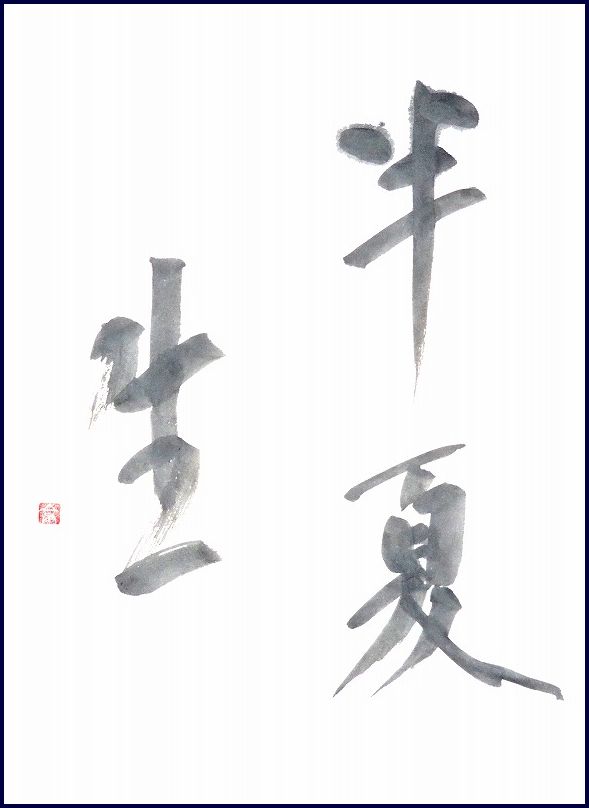 半夏
生